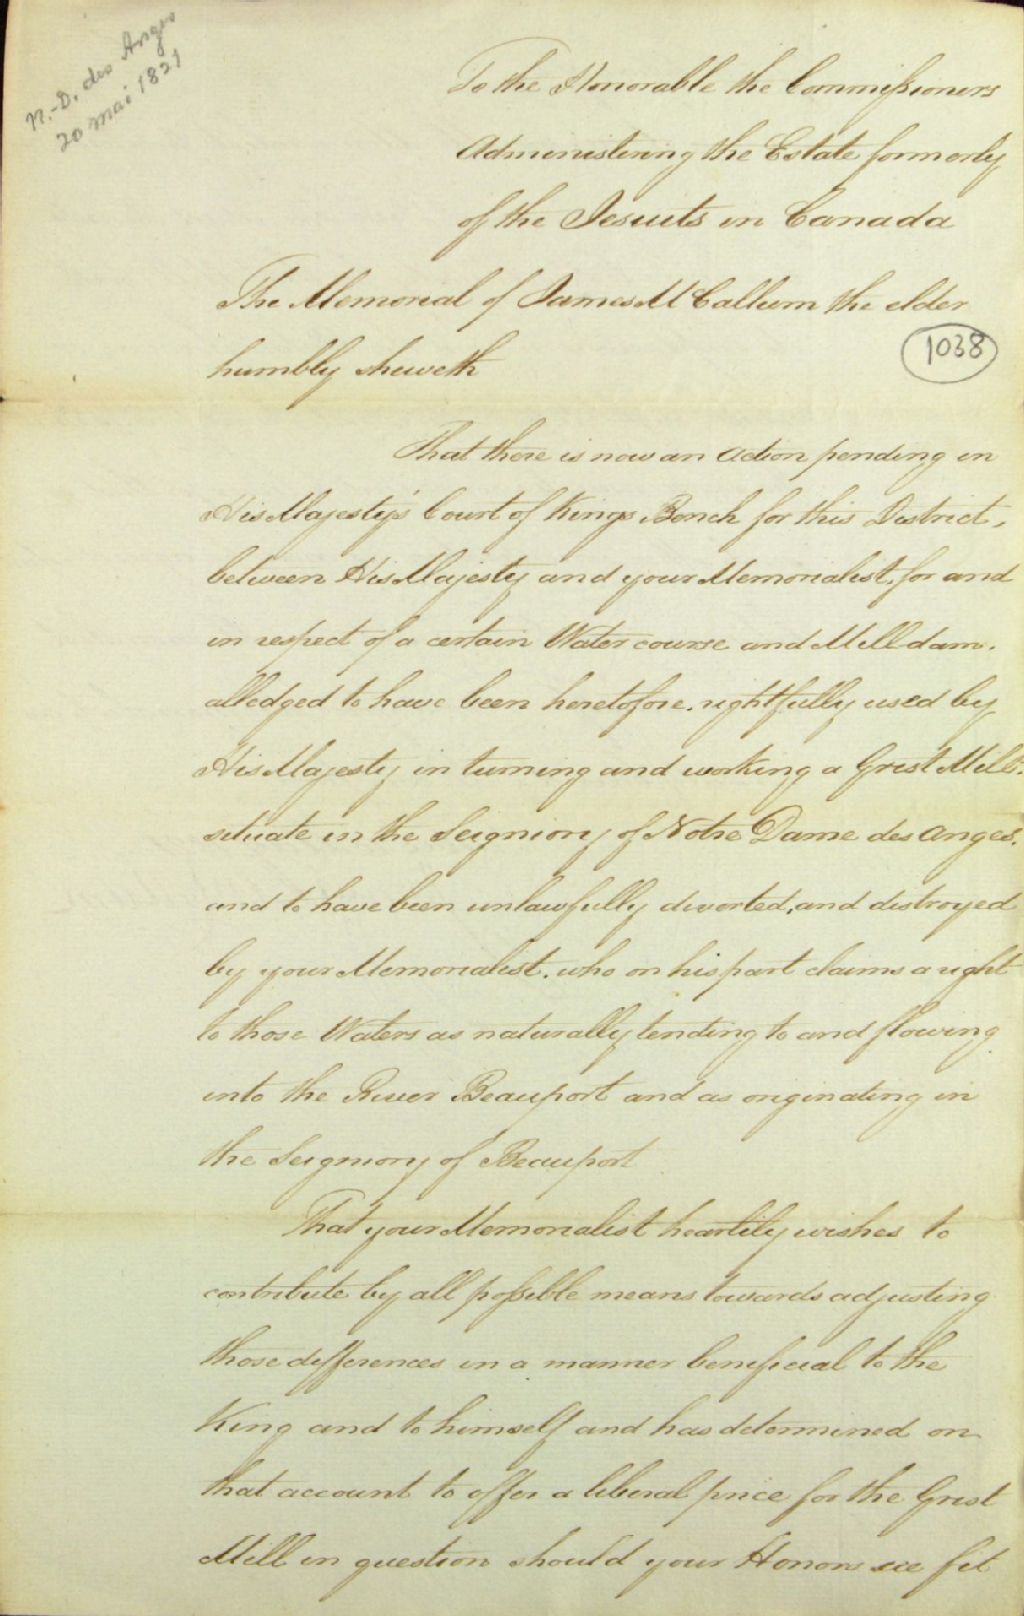 N.-D. des Anges
20 mai 1821
To the Honorable the Commissioners
Administering the Estate formerly
of the Jesuits in Canada
The Memorial of James McCallum the elder
1038
humbly sheweth
That there is now an Action pending in
His Majesty's Court of Kings Bench for this District,
between His Majesty and your Memorialist, for and
in respect of a certain Water course and Milldam.
alledged to have been heretofore. rightfully used by
His Majesty in turning and working a Grist Mill.
situate in the Seigniory of Notre Dame des Anges.
and to have been unlawfully diverted, and distroyed
by your Memorialist. who on his part claims a right
to those Waters as naturally tending to and flowing
into the River Beauport and as originating in
the Seigniory of Beauport
That your Memorialist heartily wishes to
contribute by all possible means towards adjusting
those differences in a manner beneficial to the
King and to himself and has determined on
that account to offer a liberal price for the Grist
Mill in question should your Honors see fit